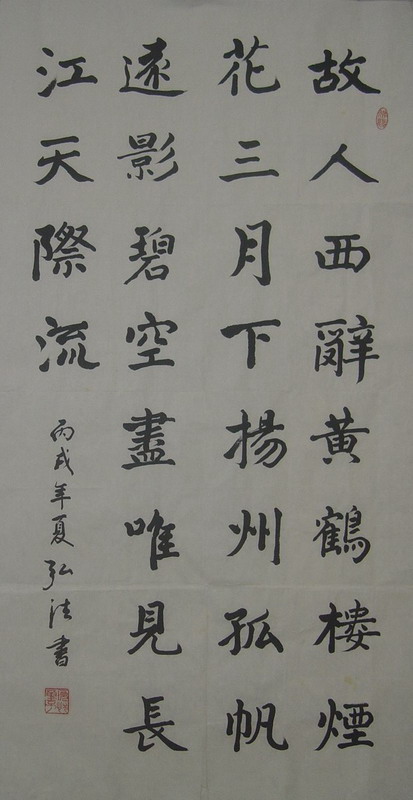 故人西辭黃鶴樓煙
花三月下揚州孤帆
遠影碧空盡唯見長
江天際流
丙戌年夏弘法書